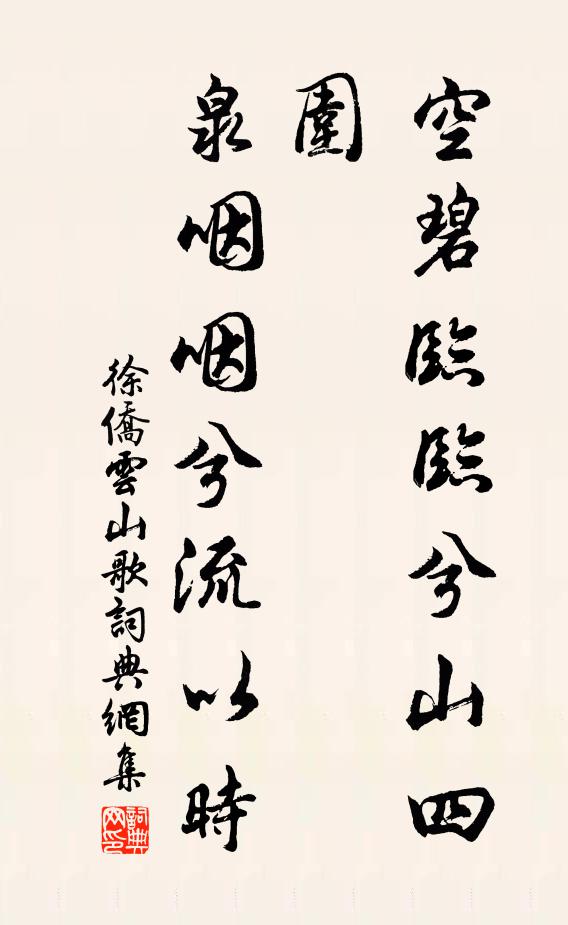 空碧臨臨兮山四
圍
泉咽咽兮流以時
徐僑雲山歌詞典網集
詞典網印